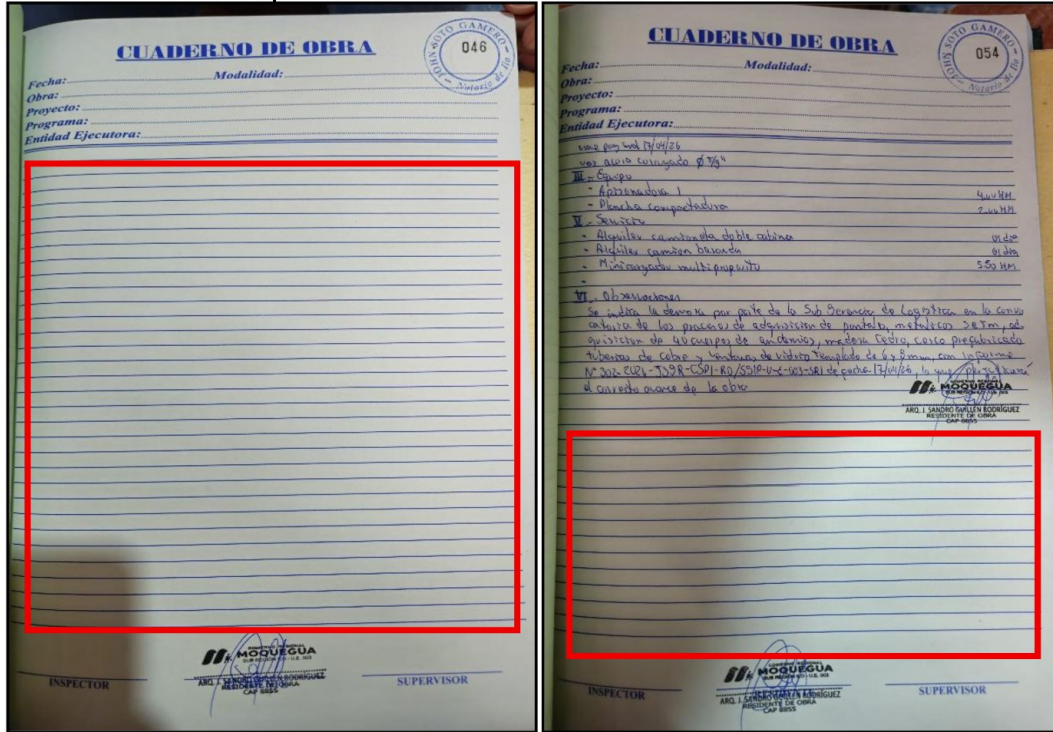 CUADERNO DE OBRA
JOHN SOTO GAMERO
046
Notario de Ilo
Fecha:
Modalidad:
Obra:
Proyecto:
Programa:
Entidad Ejecutora:
MOQUEGUA
RESIDENTE DE OBRA
CAP 8855
INSPECTOR
SUPERVISOR
CUADERNO DE OBRA
JOHN SOTO GAMERO
054
Notario de Ilo
Fecha:
Modalidad:
Obra:
Proyecto:
Programa:
Entidad Ejecutora:
17/04/26
acero corrugado Ø
III - Equipo
- Apisonadora 1
- Plancha compactadora
V - Servicio
- Alquiler camioneta doble cabina 01 dia
- Alquiler camion baranda 01 dia
- Minicargador multiproposito 5.50 HM
-
VI - Observaciones
Se indica la demora por parte de la Sub Gerencia de Logistica en la convo
catoria de los procesos de adquisicion de puntales metalicos ad
quisicion de 40 cuerpos de andamios, madera Cedro, cerco prefabricado
tuberias de cobre y ventanas de vidrio Templado de 6 y 8mm, con Informe
de fecha 17/04/26, lo que
el correcto avance de la obra
MOQUEGUA
ARQ. J. SANDRO GUILLÉN RODRÍGUEZ
RESIDENTE DE OBRA
CAP 8855
MOQUEGUA
RESIDENTE DE OBRA
CAP 8855
INSPECTOR
SUPERVISOR